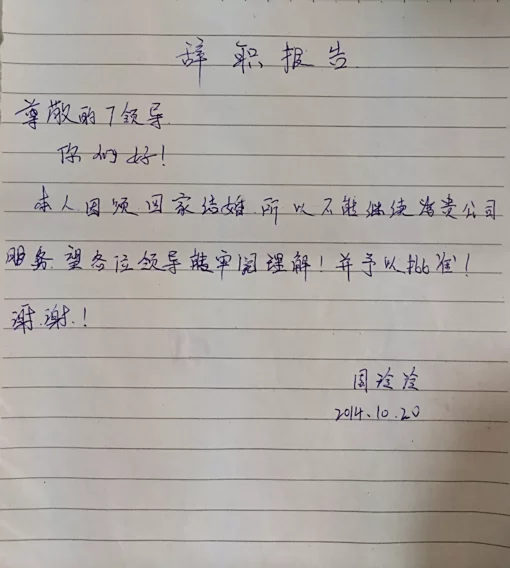 辞职报告
尊敬的厂领导
你们好!
本人因须回家结婚.所以不能继续为贵公司
服务.望各位领导能审阅理解!并予以批准!
谢.谢.!
周冷冷
2014.10.20